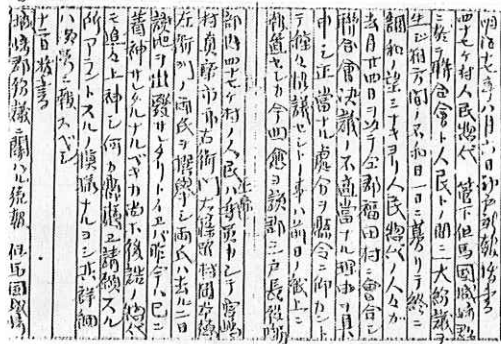 明治十七年八月六日神戸新報抜書
四十七ヶ村人民惣代 管下但馬國城崎郡
ニ於テ聯合會ト人民トノ間ニ大紛議ヲ
生シ 方間ノ不和日一日ニ募リテ終ニ
調和ノ望ミナキヨリ人民惣代ノ人々カ
当月廿四日ヲ以テ仝郡福田村ニ會合シ
聯合會決議ノ不當ナル理由ヲ具
申シ正當ナル處分ヲ縣令ニ仰カント
テ種々協議セシトノ事ハ前日ノ紙上ニ
報道セシカ今回愈ヨ該郡三戸長役場
部内四十七ヶ村ノ人民ハ委員トシテ宮島
村 市郎右衛門大篠岡村岡本徳
左衛門ノ両氏ヲ撰挙シ両氏ハ去ル二日
該地ヲ出發サレタリトイエバ昨今ハ已ニ
着神サレタルナルベキカ尚ホ後詰ノ惣代
モ追々上神シ何カ縣廰エ請願スル
所アラントスル模様ナルヨシ 詳細
ハ後号ニ報スベシ
十二日抜書
城崎郡紛議ニ関ハル続報 但馬國城崎